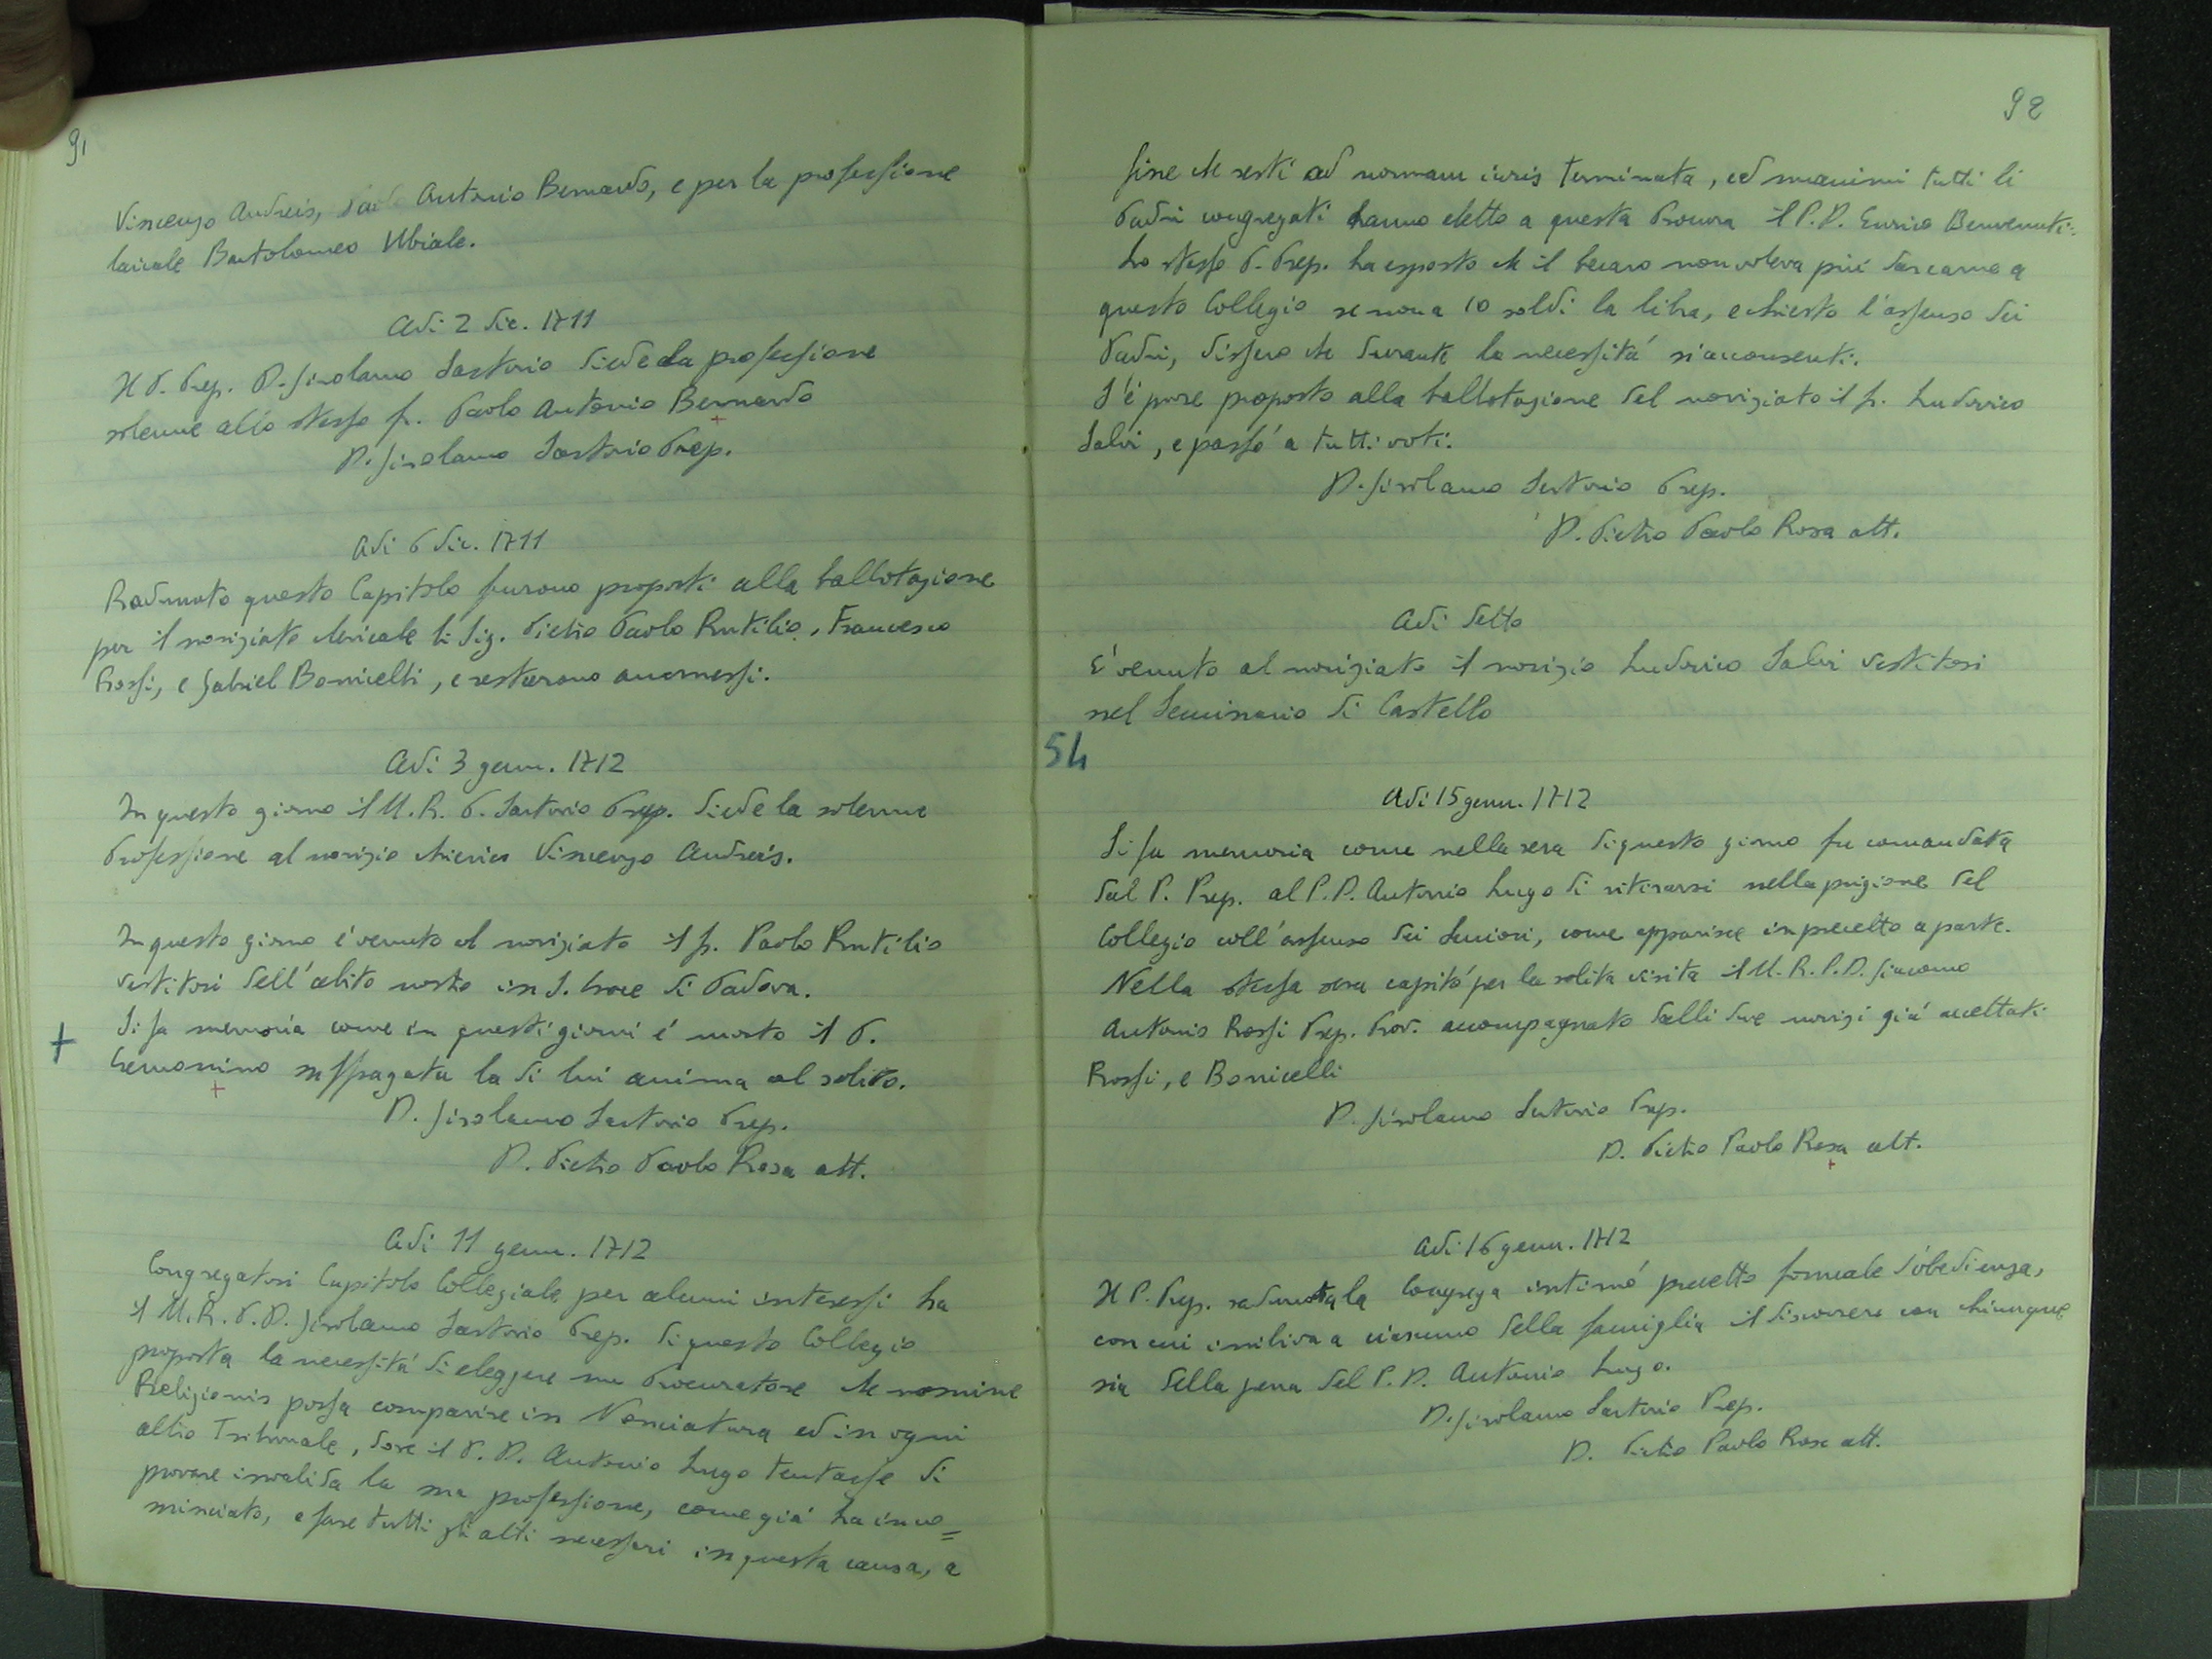 91
Vincenzo Andreis, Antonio Bernardo, e per la professione
laicale Bartolomeo Ubiale.
Adi 2 dic. 1711
Il P. Prep. D. Girolamo Sartorio diede la professione
solenne allo stesso fr. Paolo Antonio Bernardo
D. Girolamo Sartorio Prep.
Adi 6 dic. 1711
Radunato questo Capitolo furono proposti alla ballotazione
per il noviziato chericale li Sig. Pietro Paolo Rutilio, Francesco
Rossi, e Gabriel Bonicelli, e restarono ammessi.
Adi 3 genn. 1712
In questo giorno il M. R. P. Sartorio Prep. diede la solenne
Professione al novizio chierico Vincenzo Andreis.
In questo giorno é venuto al noviziato il fr. Paolo Rutilio
vestitosi dell'abito nostro in S. Croce di Padova.
+ Si fa memoria come in questi giorni é morto il P.
Cremonino suffragata la di lui anima al solito.
D. Girolamo Sartorio Prep.
D. Pietro Paolo Rosa att.
Adi 11 genn. 1712
Congregatosi Capitolo Collegiale per alcuni interessi ha
il M. R. P. D. Girolamo Sartorio Prep. di questo Collegio
proposta la necessitá di eleggere un Procuratore che nomine
Religionis possa comparire in Nonciatura ed in ogni
altro Tribunale, dove il P. D. Antonio Lugo tentasse di
provare invalida la sua professione, come giá ha inco=
minciato, e fare tutti gli atti necessari in questa causa, a
92
fine che resti ad normam iuris terminata, ed unanimi tutti li
Padri congregati hanno eletto a questa Procura il P. D. Enrico Benvenuti:
Lo stesso P. Prep. ha esposto che il becaro non voleva piú dar carne a
questo Collegio se non a 10 soldi la libra, e chiesto l'assenso dei
Padri, dissero che durante la necessitá si acconsenti.
S'é pure proposto alla ballotazione del noviziato il fr. Ludovico
Salvi, e passó a tutti voti.
D. Girolamo Sartorio Prep.
D. Pietro Paolo Rosa att.
Adi detto
É venuto al noviziato il novizio Ludovico Salvi vestitosi
nel Seminario di Castello
54
Adi 15 genn. 1712
Si fa memoria come nella sera di questo giorno fu comandata
dal P. Prep. al P. D. Antonio Lugo di ritirarsi nella prigione del
Collegio coll'assenso dei Seniori, come apparisce in precetto a parte.
Nella stessa sera capitó per la solita visita il M. R. P. D. Giacomo
Antonio Rossi Prep. Prov. accompagnato dalli due novizi giá accettati
Rossi, e Bonicelli
D. Girolamo Sartorio Prep.
D. Pietro Paolo Rosa att.
Adi 16 genn. 1712
Il P. Prep. radunata la Congrega intimó precetto formale d'obedienza,
con cui inibiva a ciascuno della famiglia il discorrere con chiunque
sia della pena del P. D. Antonio Lugo.
D. Girolamo Sartorio Prep.
D. Pietro Paolo Rosa att.